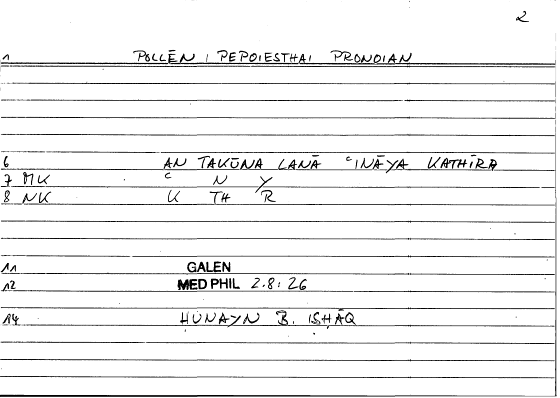 2
1 POLLĒN ; PEPOIESTHAI PRONOIAN
6 AN TAKŪNA LANĀ ʿINĀYA KATHĪRA
7 MK ʿ N Y
8 NK K TH R
11 GALEN
12 MED PHIL 2.8: 26
14 ḤUNAYN B. ISḤĀQ